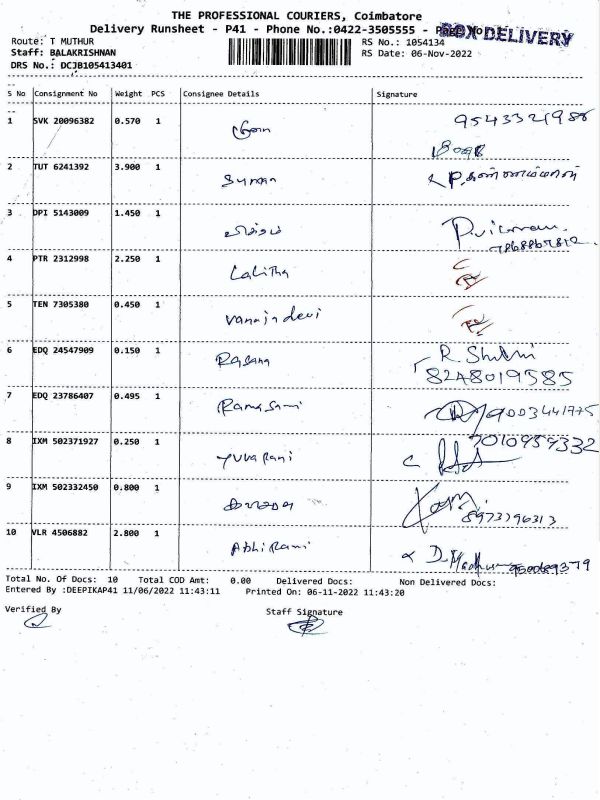 THE PROFESSIONAL COURIERS, Coimbatore
Delivery Runsheet - P41 - Phone No.:0422-3505555 - Page No
BOX DELIVERY
Route: T MUTHUR
RS No.: 1054134
Staff: BALAKRISHNAN
RS Date: 06-Nov-2022
DRS No.: DCJB105413401
S No Consignment No Weight PCS Consignee Details Signature
1 SVK 20096382 0.570 1
2 TUT 6241392 3.900 1 Suman
3 DPI 5143009 1.450 1
4 PTR 2312998 2.250 1 Lalitha
5 TEN 7305380 0.450 1
6 EDQ 24547909 0.150 1 R. Shalini
8248019585
7 EDQ 23786407 0.495 1 Ramasami 9003441775
8 IXM 502371927 0.250 1 Yuvarani 7010959332
9 IXM 502332450 0.800 1
8973796313
10 VLR 4506882 2.800 1 Abhirami
Total No. Of Docs: 10 Total COD Amt: 0.00 Delivered Docs: Non Delivered Docs:
Entered By :DEEPIKAP41 11/06/2022 11:43:11 Printed On: 06-11-2022 11:43:20
Verified By Staff Signature